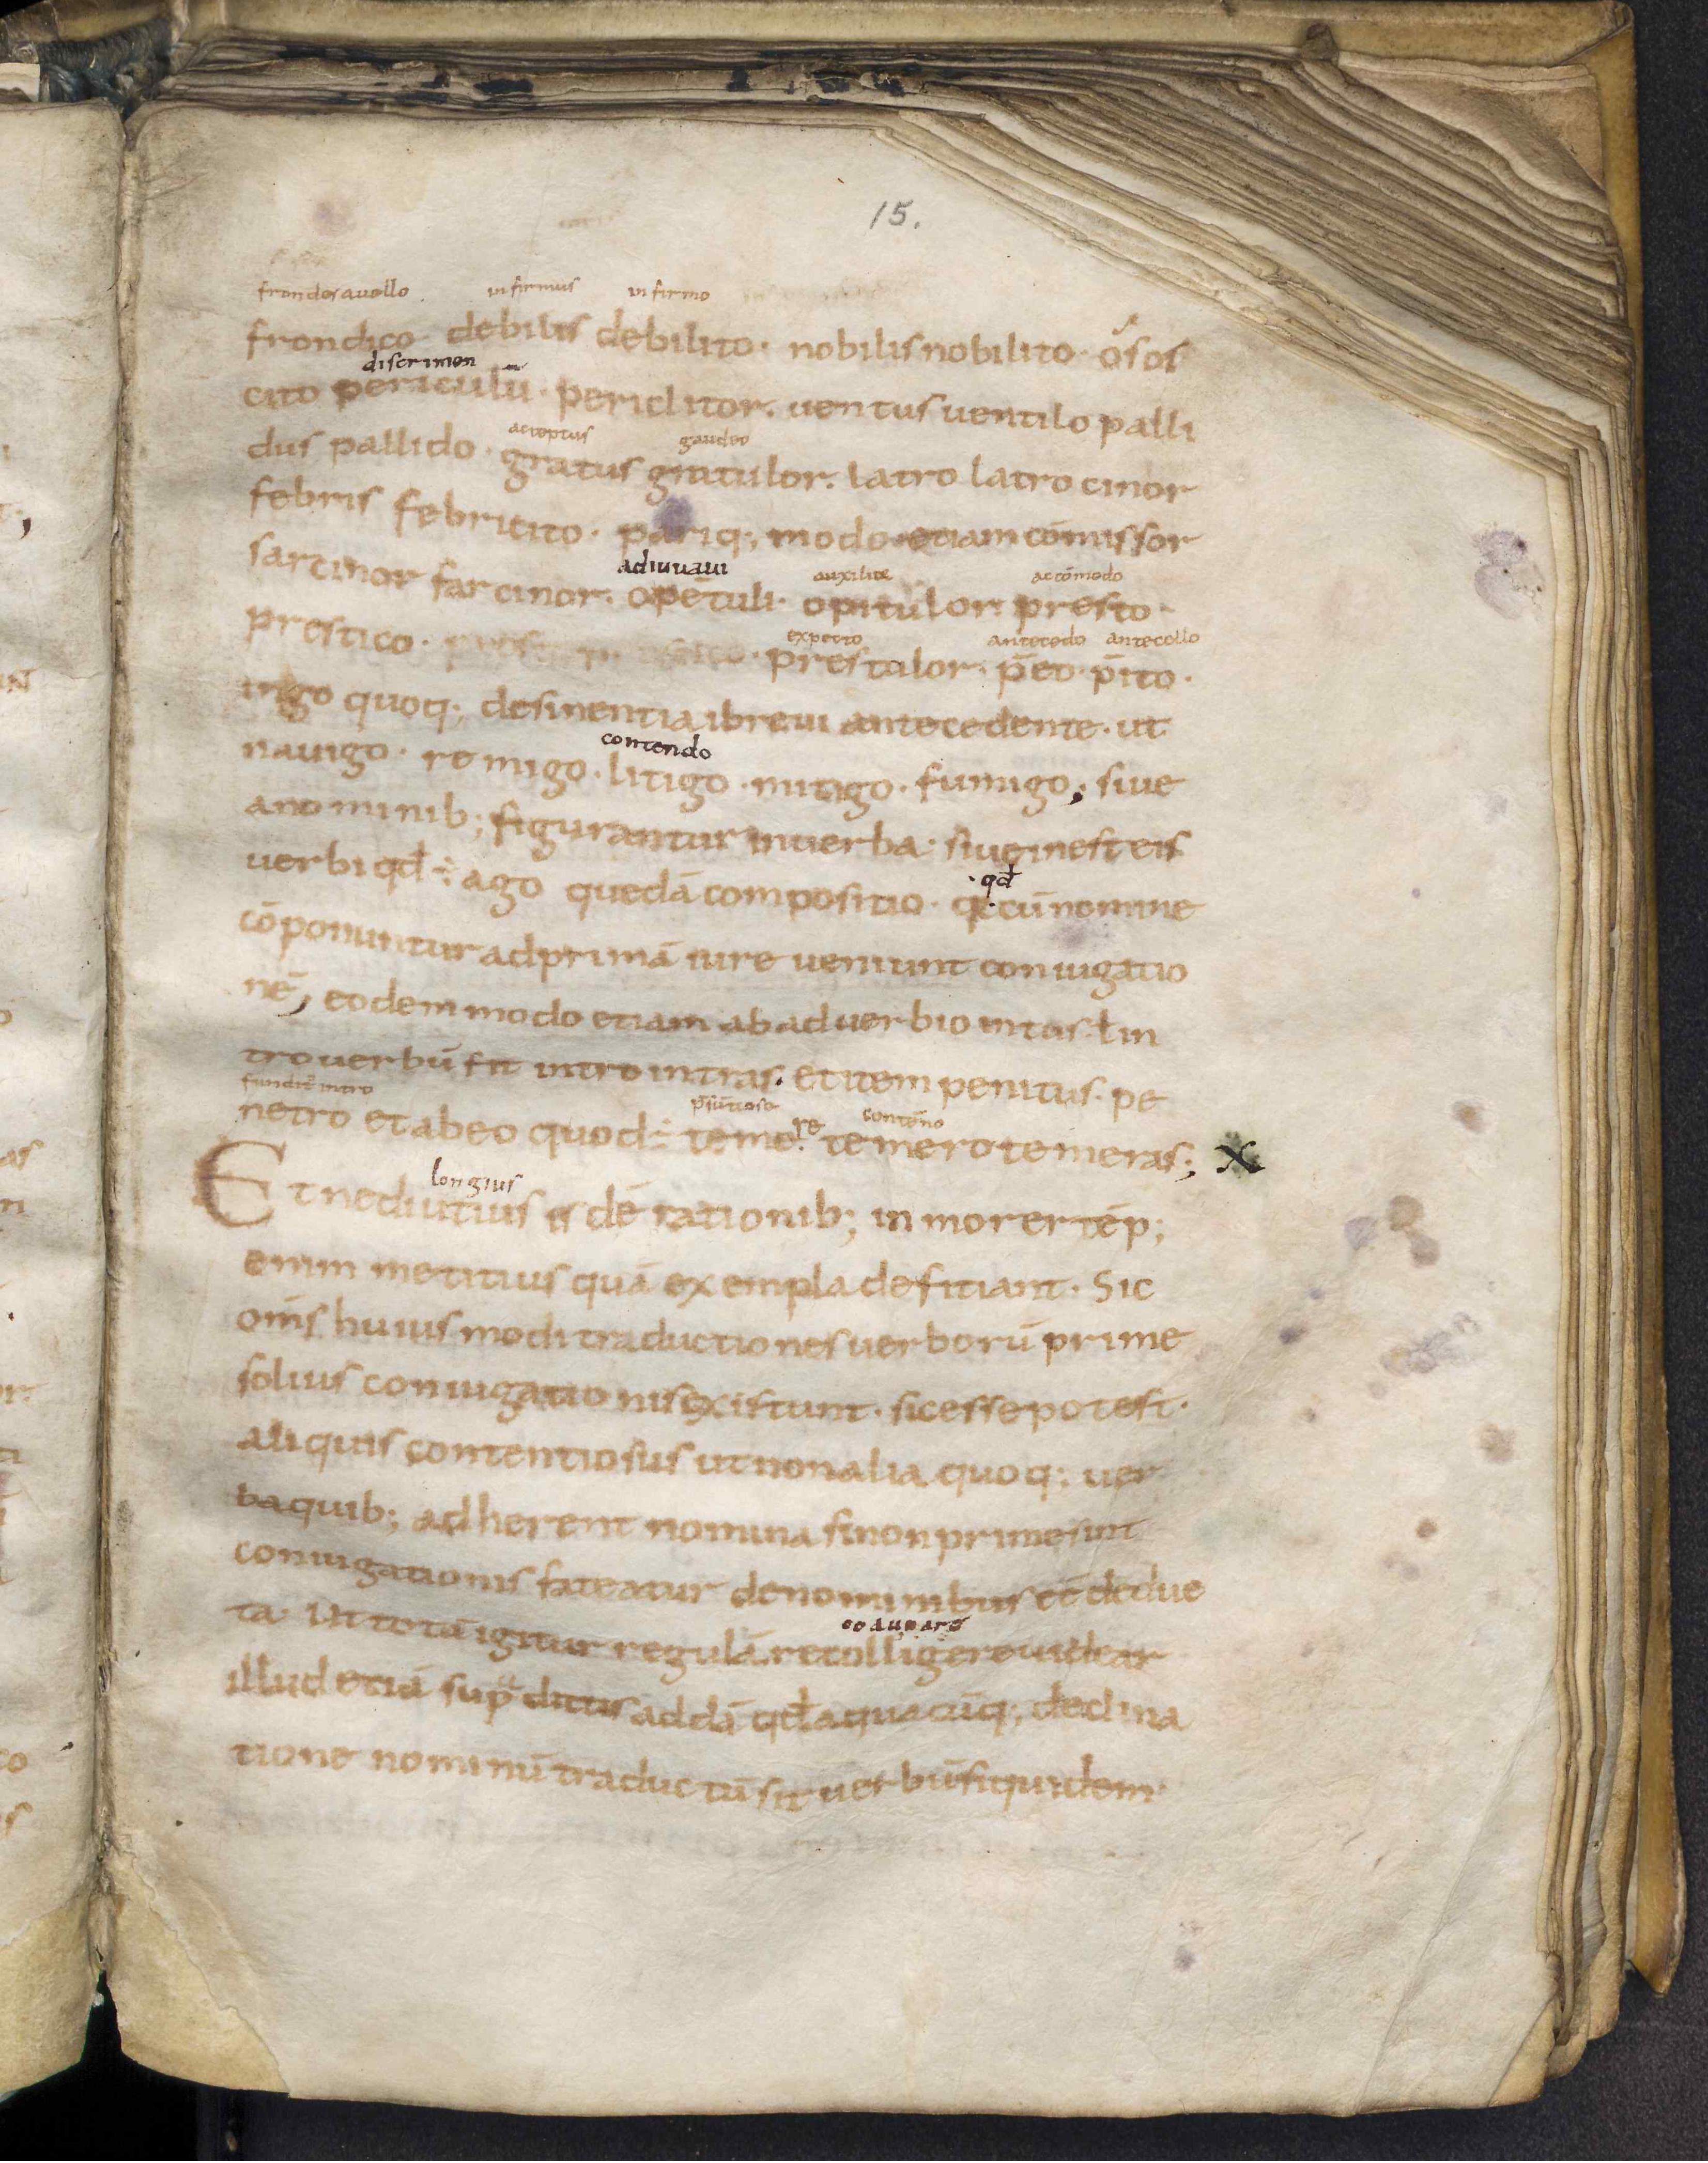 15.
frondesauello infirmus infirmo
frondico debilis debilito · nobilis nobilito · osos
discrimen
cito periculū · periclitor . uentus uentilo palli
acceptus gaudeo
dus pallido · gratus gratulor . latro latrocinor
febris febricito · pariq; modo etiam cōmissor
adiuuaui auxilior accōmodo
sarcinor farcinor . opētuli · opitulor presto ·
expecto antecedo antecello
prestico · prestolor · p̄eo · p̄ito ·
in go quoq; desinentia ibreui antecedente · ut
contendo
nauigo · remigo · litigo · mitigo · fumigo ; siue
a nominib; figurantur inuerba · siue inest eis
qd̄
uerbi qd ÷ ago quedā compositio · q cū nomine
cōponuntur ad primā iure ueniunt coniugatio
nē , eodem modo etiam ab aduerbio intus ł in
tro uerbū fit intro intras . et item penitus · pe
funditꝰ intro p̄sūtiose contēno
netro et abeo quod ÷ temere temero temeras ; X
longius
Et ne diutius isdē rationib; inmorer tēp;
enim me titius quā exempla defitiant · Sic
om̄s huius modi traductiones uerborū prime
solius coniugationis existunt · sic esse potest ·
aliquis contentiosus ut non alia quoq; uer
ba quib; adherent nomina si non prime sint
coniugationis fateatur denominibus eē deduc
coadunare
ta · Ut totā igitur regulā recolligere uidear
illud etiā sup̄ dictis addā qd̄ a quacūq; declina
tione nominū traductū sit uerbū siquidem